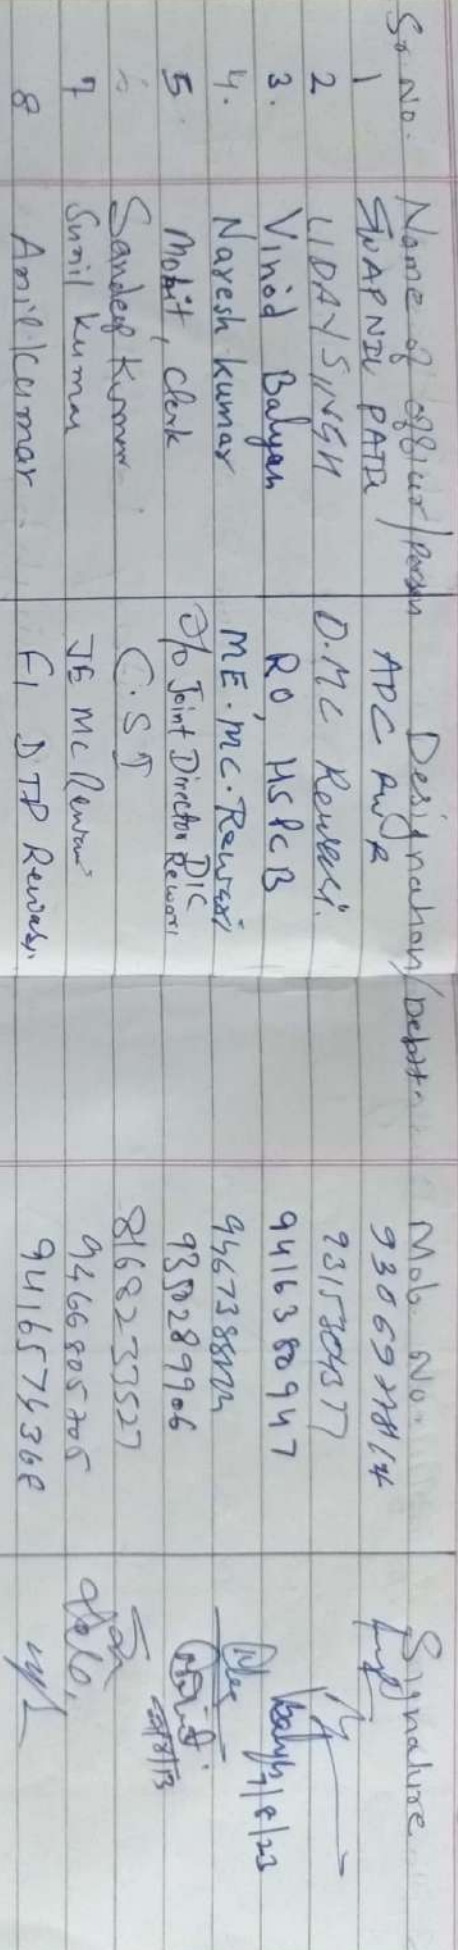 Sr. No. Name of officer/Person Designation/Deptt. Mob. No. Signature
1 SWAPNIL PATIL ADC RWR
2 UDAY SINGH D.MC Rewari.
3. Vinod Balyan RO, HSPCB 9416380947 7/8/23
4. Naresh kumar ME. MC. Rewari
5. Mohit, Clerk O/o Joint Director DIC Rewari 9350289906
Sandeep Kumar C.S.I 8168233527
7 Sunil Kumar JE MC Rewari 9466805705
8 Anil Kumar FI DTP Rewari. 9416574368